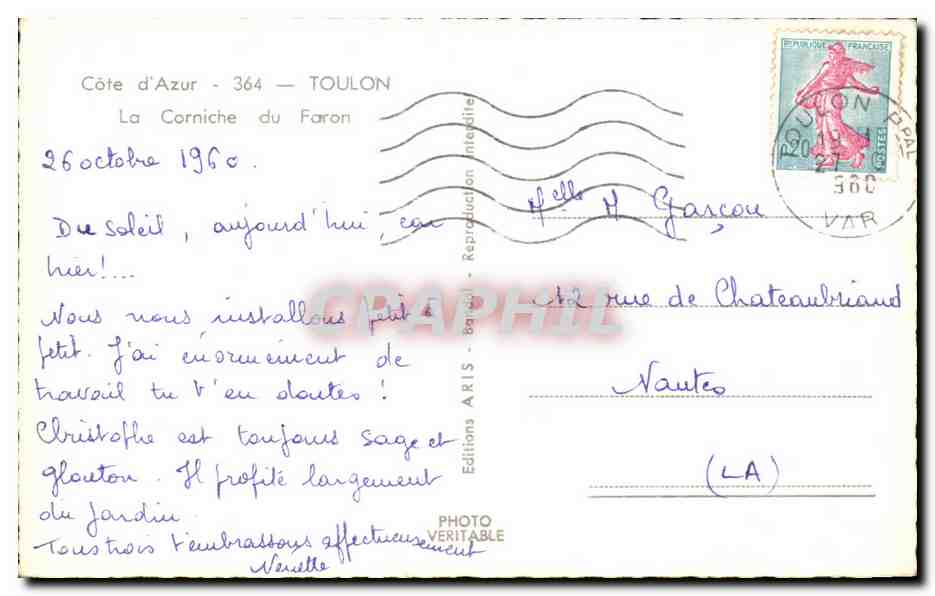 Côte d'Azur - 364 — TOULON
La Corniche du Faron
26 octobre 1960.
Du soleil, aujourd'hui, car
hier!....
Nous nous installons petit à
petit. J'ai énormément de
travail tu t'en doutes !
Christophe est toujours sage et
glouton. Il profite largement
du jardin.
Tous trois t'embrassons affectueusement
Editions ARIS - Bandol - Reproduction Interdite
PHOTO
VERITABLE
REPUBLIQUE FRANÇAISE
POSTES
TOULON PPAL
VAR
Melle M Garçon
12 rue de Chateaubriand
Nantes
(LA)
CPAPHIL